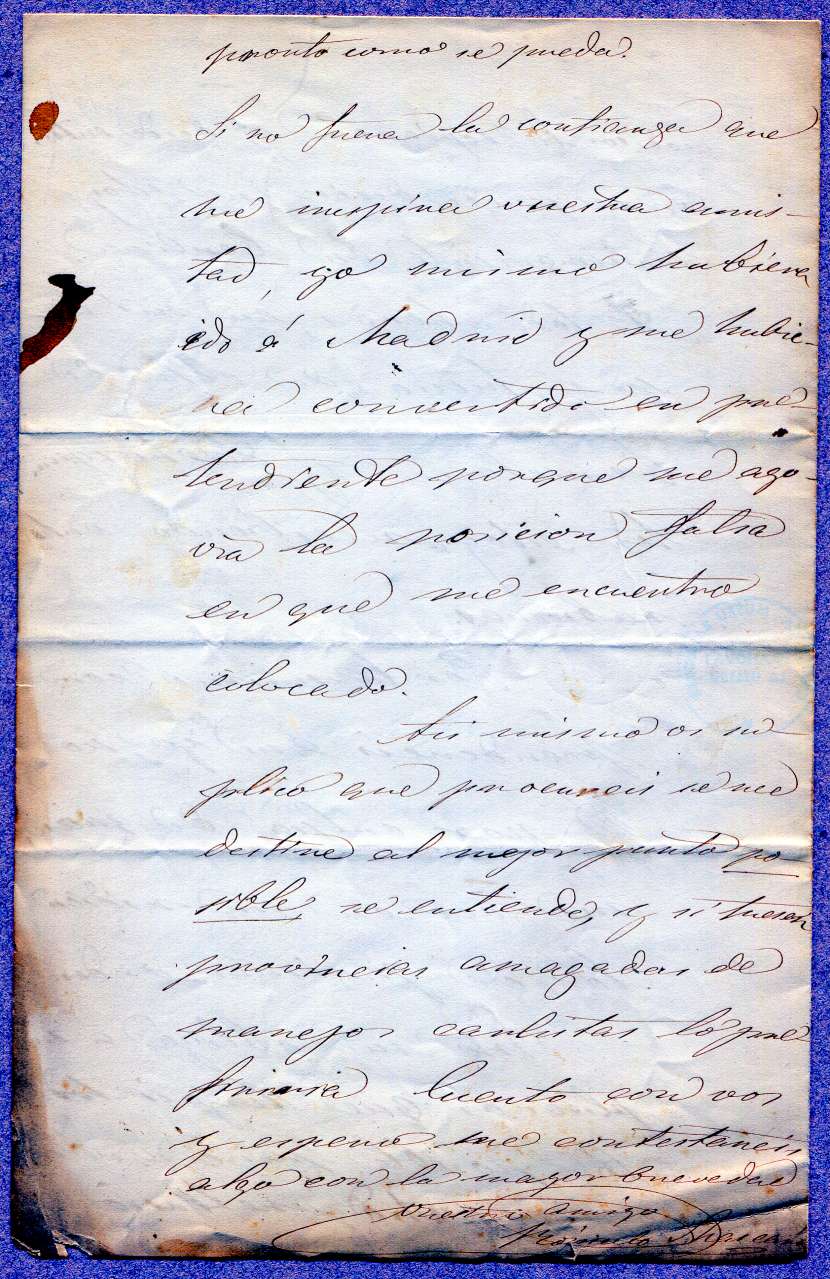 pronto como se pueda.
Si no fuera la confianza que
me inspira vuestra amis-
tad, yo mismo hubiera
ido á Madrid y me hubie-
ra convertido en pre-
tendiente porque me ago-
via la posicion falsa
en que me encuentro
colocado.
Asi mismo os su-
plico que procureis se me
destine al mejor punto po
sible, se entiende, y si fuesen
provincias amagadas de
manejos carlistas lo pre-
feriria Cuento con vos
y espero me contestareis
algo con la mayor brevedad
vuestro amigo